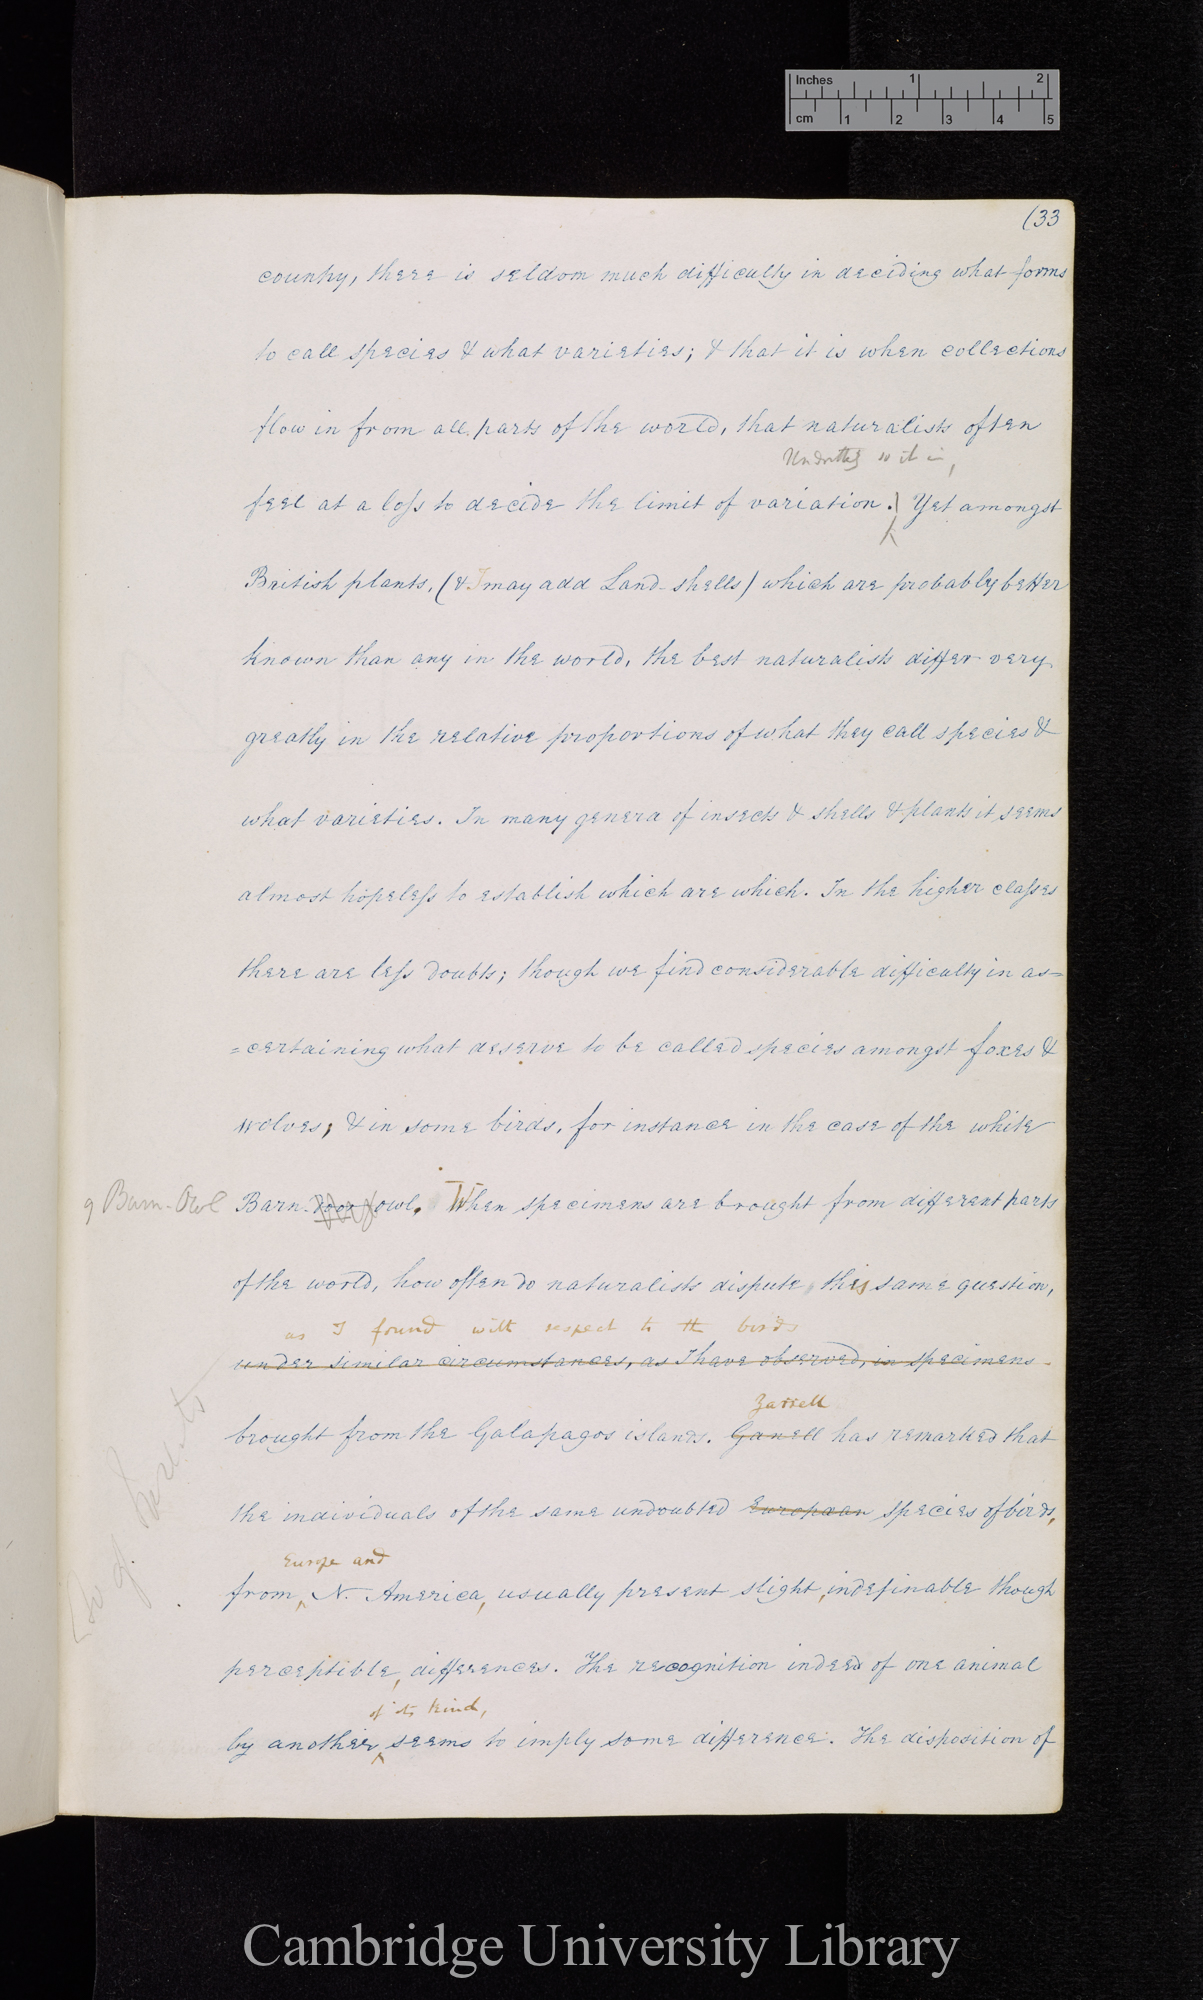 Inches 1 2
cm 1 2 3 4 5
(33
country, there is seldom much difficulty in deciding what forms
to call species & what varieties; & that it is when collections
flow in from all parts of the world, that naturalists often
so it is,
feel at a loss to decide the limit of variation. Yet amongst
British plants, (& I may add Land-shells) which are probably better
known than any in the world, the best naturalists differ very
greatly in the relative proportions of what they call species &
what varieties. In many genera of insects & shells & plants it seems
almost hopeless to establish which are which. In the higher classes
there are less doubts; though we find considerable difficulty in as=
=certaining what deserve to be called species amongst foxes &
wolves; & in some birds, for instance in the case of the white
Barn-Owl
Barn-Door owl. When specimens are brought from different parts
of the world, how often do naturalists dispute this same question,
as I found with respect to the birds
under similar circumstances, as I have observed, in specimens
Yarrell
brought from the Galapagos islands. Ganell has remarked that
the individuals of the same undoubted European species of birds,
Europe and
from N. America, usually present slight, indefinable though
perceptible, differences. The recognition indeed of one animal
of its kind,
by another seems to imply some difference. The disposition of
Cambridge University Library